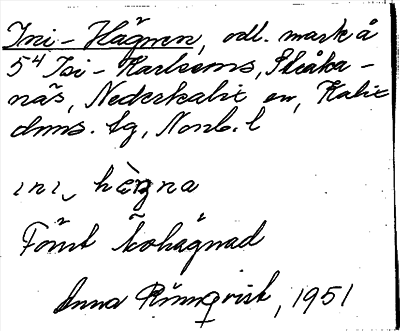 Ini-Hägnen, odl. mark å
5⁴ Isi-Karlsems, Stråka-
näs, Nederkalix sn, Kalix
dms. tg, Nonb. l
ini, hägna
Förut kohägnad
Anna Rönnqvist, 1951